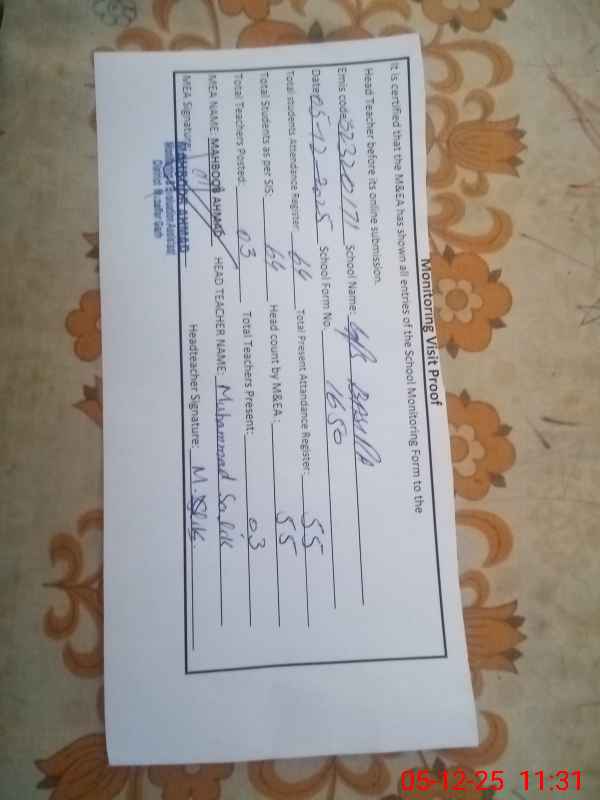 Monitoring Visit Proof
It is certified that the M&EA has shown all entries of the School Monitoring Form to the
Head Teacher before its online submission.
Emis code: 32320171 School Name:
Date: 05-12-2025 School Form No. 1650
Total students Attendance Register: 64 Total Present Attandance Register: 55
Total Students as per SIS: 64 Head count by M&EA: 55
Total Teachers Posted: 03 Total Teachers Present: 03
MEA NAME: MAHBOOB AHMAD HEAD TEACHER NAME: Muhammad Sadik
MEA Signature: Headteacher Signature: M.
MAHBOOB AHMAD
05-12-25 11:31